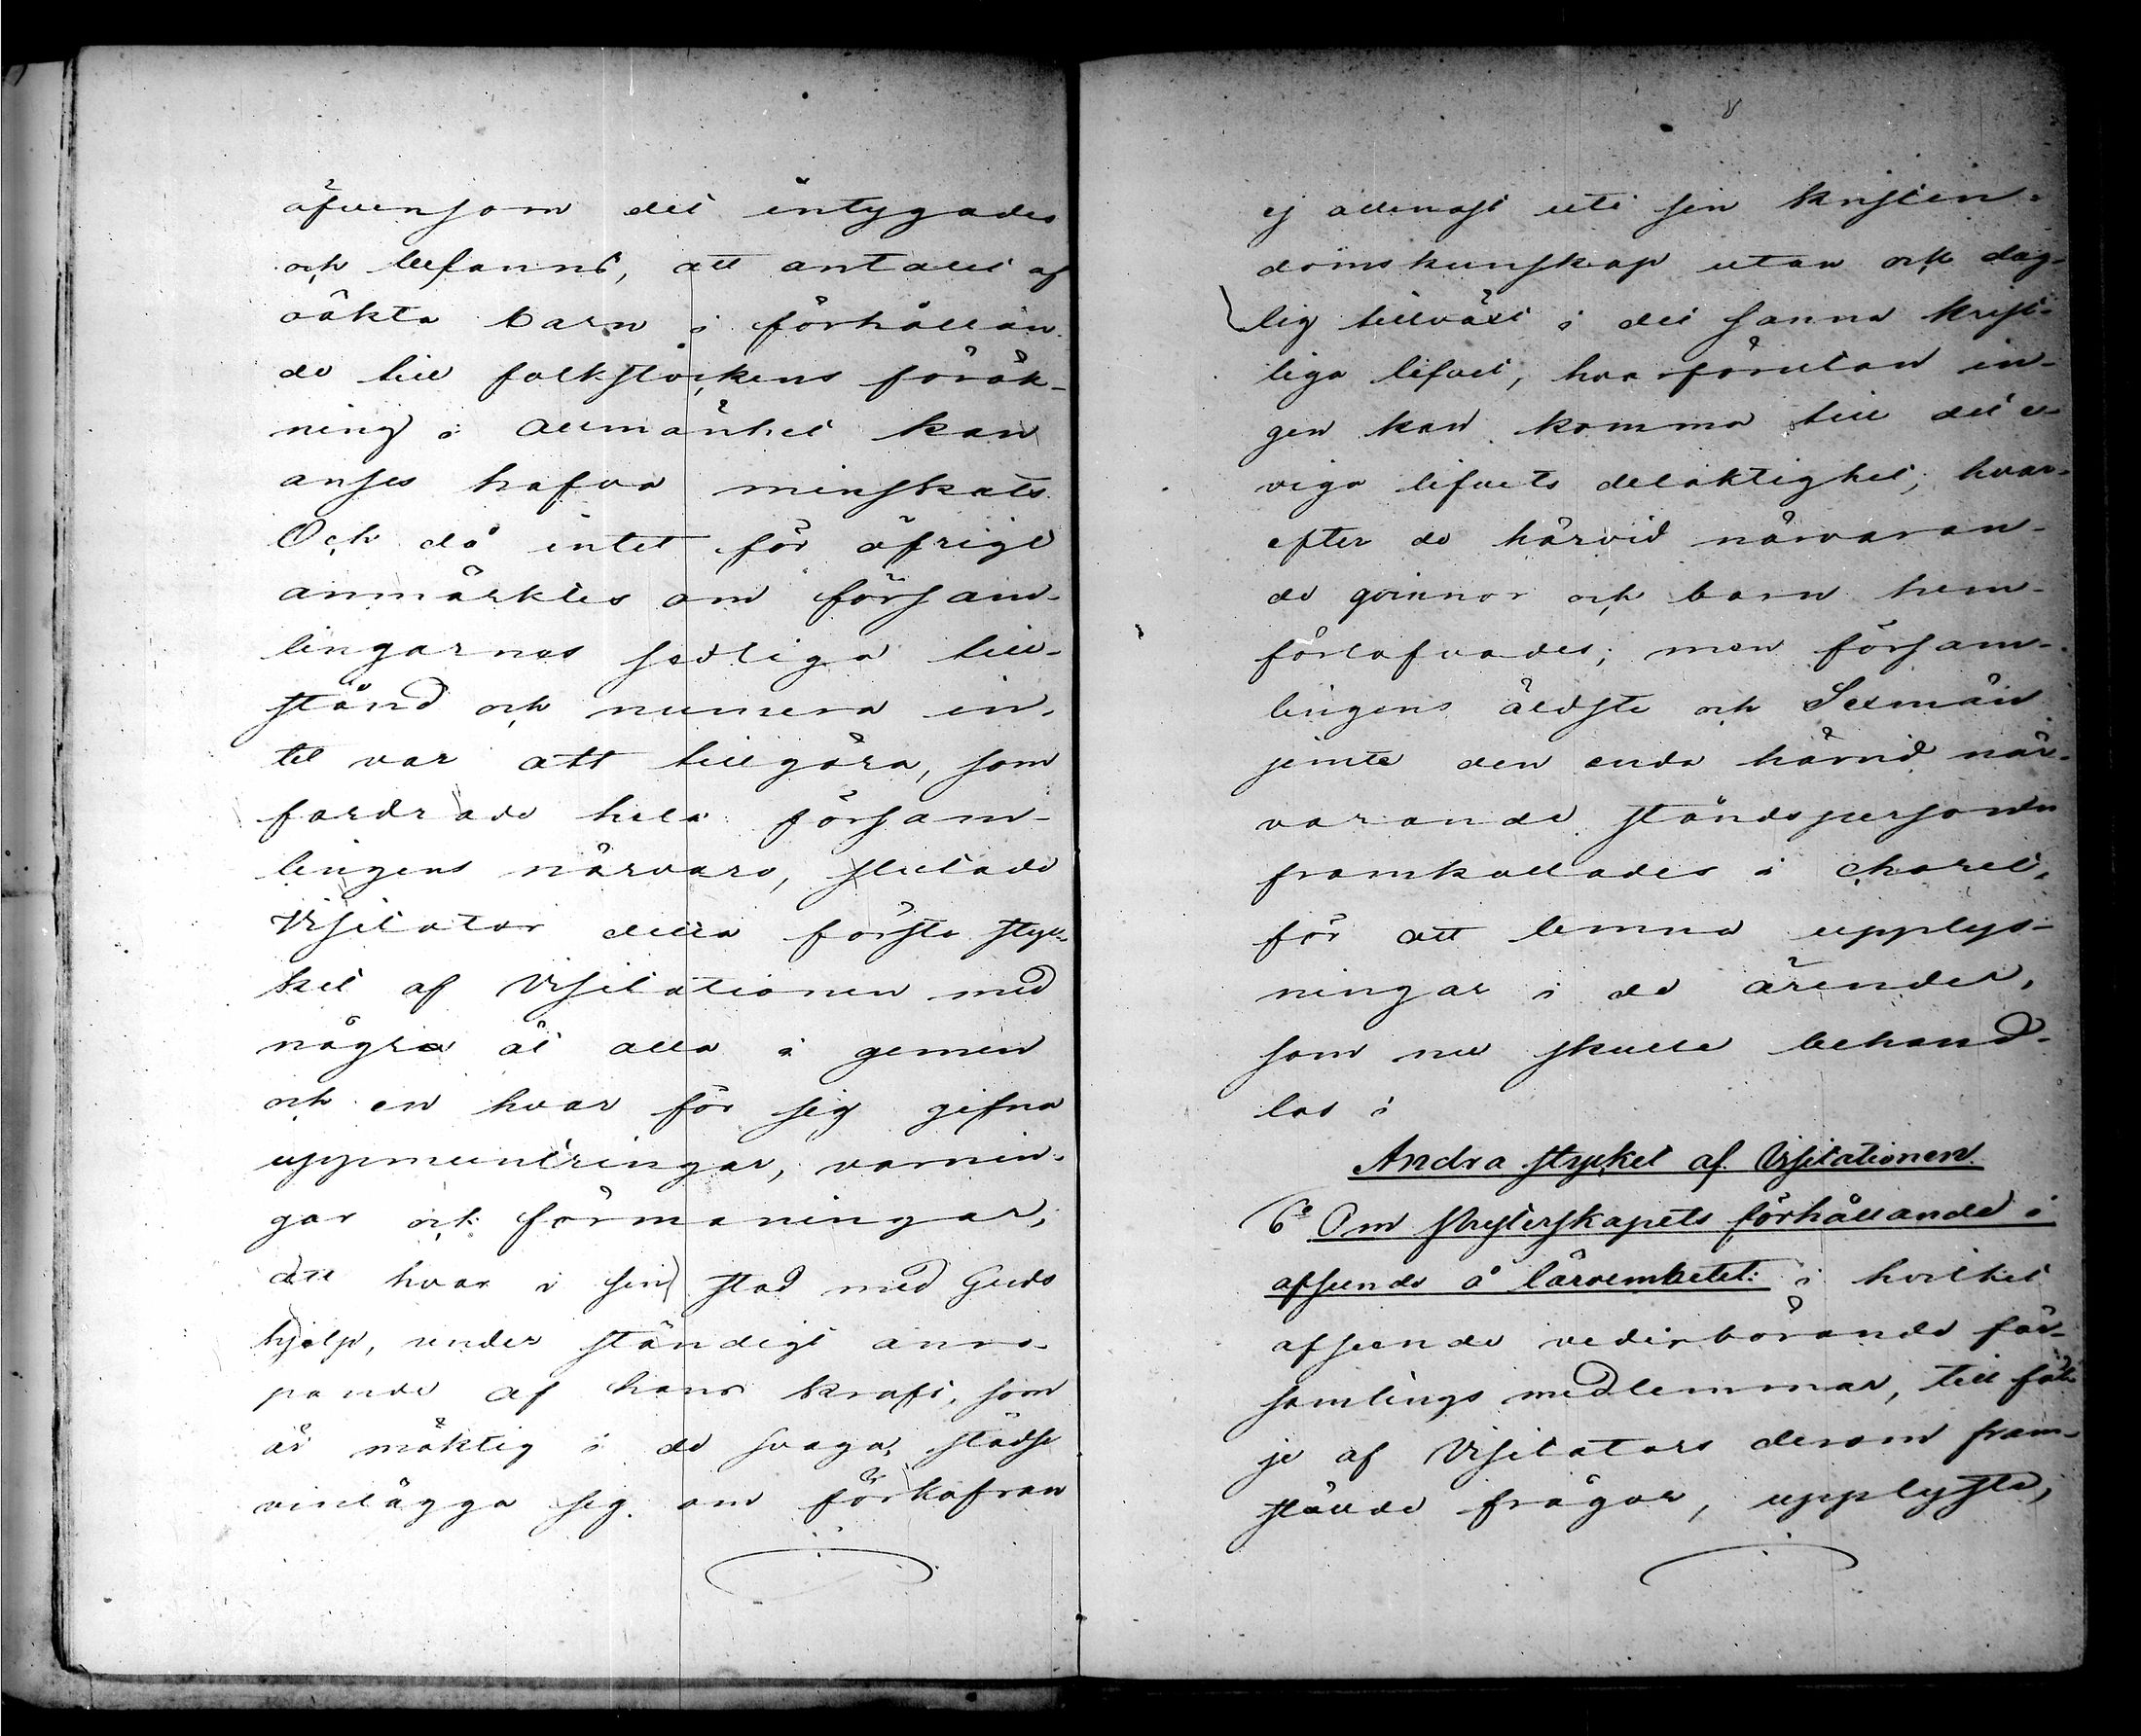 äfvensom det intygades
och befanns, att antalet af
oäkta barn i förhållan-
de till folkstockens förök-
ning i allmänhet kan
anses hafva minskats.
Och då intet för öfrigt
anmärktes om försam-
lingarnas sedliga till-
stånd och numera in-
tet var att tillgöra, som
fordrade hela försam-
lingens närvaro, slutade
Visitator detta första styc-
ket af Visitationen med
några åt alla i gemen
och en hvar för sig gifna
uppmuntringar, varnin-
gar och förmaningar,
att hvar i sin stad med Guds
hjelp, under ständigt anro-
pande af hans kraft, som
är mäktig i de svaga, städse
vinlägga sig om förkofran
ej allenast uti sin kristen-
domskunskap utan och dag-
lig tillväxt i det sanna krist-
liga lifvet, hvarförutan in-
gen kan komma till det e-
viga lifvets delaktighet; hvar-
efter de härvid närvaran-
de qvinnor och barn hem-
förlofvades; men försam-
lingens äldste och Sexmän
jemte den enda härvid när-
varande ståndspersonen
framkallades i choret,
för att lemna upplys-
ningar i de ärender,
som nu skulle behand-
las i
Andra stycket af Visitationen.
6o Om Presterskapets förhållande i
afseende å läroembetet: i hvilket
afseende vederbörande för-
samlings medlemmar, till föl-
je af Visitators derom fram-
stälde frågor, upplyste,